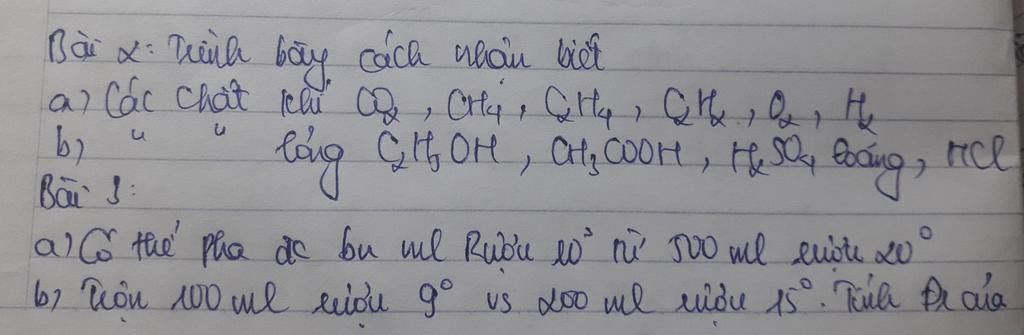 Bài 2: Trình bày cách nhận biết
a) Các chất khí CO2, CH4, C2H4, C2H2, O2, H2
b) " " lỏng C2H5OH, CH3COOH, H2SO4 loãng, HCl
Bài 3:
a) Có thể pha đc bn ml Rượu 10° từ 500 ml rượu 20°
b) Trộn 100 ml rượu 9° vs 200 ml rượu 15°. Tính Đr của